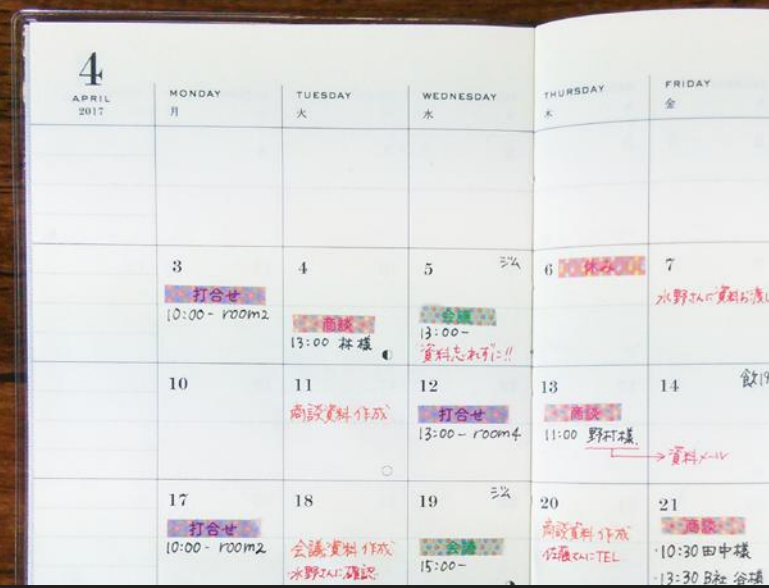 4
APRIL
2017
MONDAY
月
TUESDAY
火
WEDNESDAY
水
THURSDAY
木
FRIDAY
金
3
打合せ
10:00- room2
4
商談
13:00 林様
5
ジム
会議
13:00-
資料忘れずに!!
6
休み
7
水野さんに資料お渡し
10
11
商談資料作成
12
打合せ
13:00- room4
13
商談
11:00 野村様
14
飲
→資料メール
17
打合せ
10:00- room2
18
会議資料作成
水野さんに確認
19
ジム
会議
15:00-
20
商談資料作成
佐藤さんにTEL
21
商談
・10:30 田中様
・13:30 B社 谷様